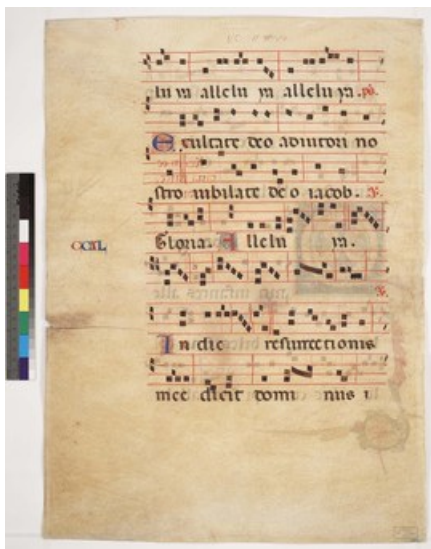 lu ya alleluya alleluya. ps.
Exultate deo adiutori no
stro iubilate deo iacob. V.
Gloria. Alleluya.
V.
In die resurrectionis
mee dicit dominus